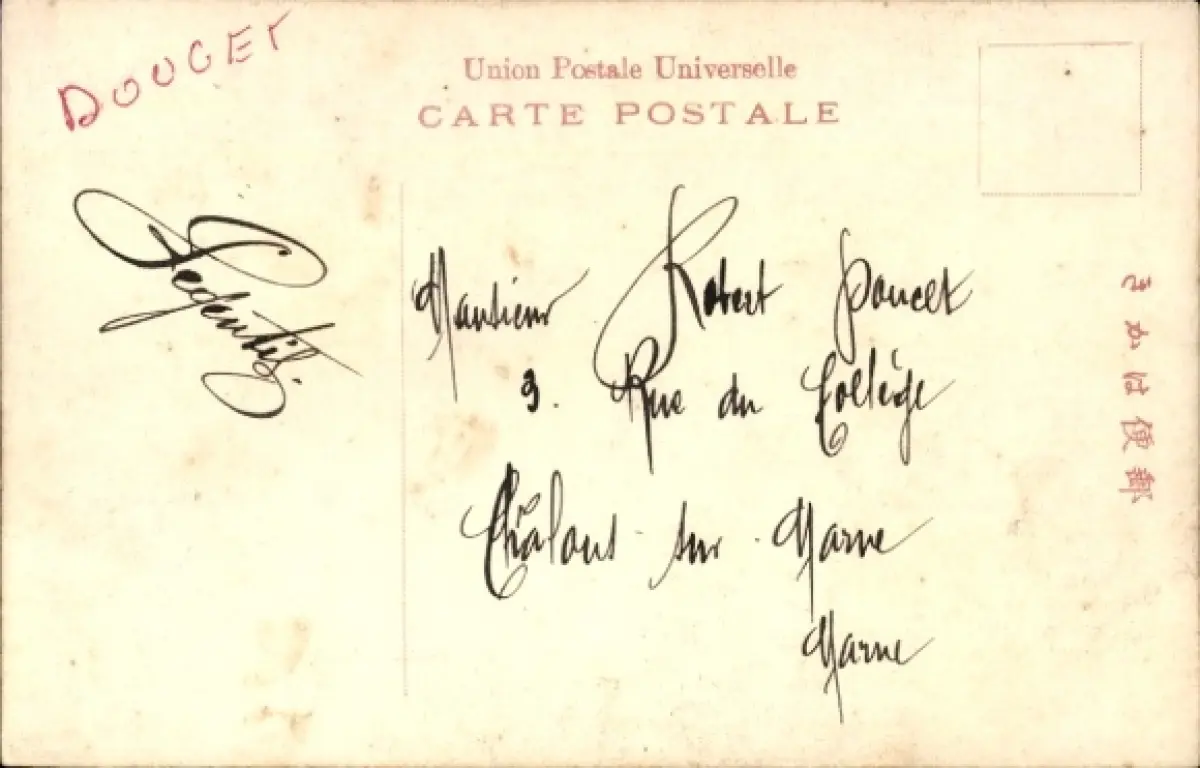 DOUCET
Union Postale Universelle
CARTE POSTALE
Legentil
Monsieur Robert Doucet
9. Rue du Collège
Châlons - sur - Marne
Marne
きかは便郵